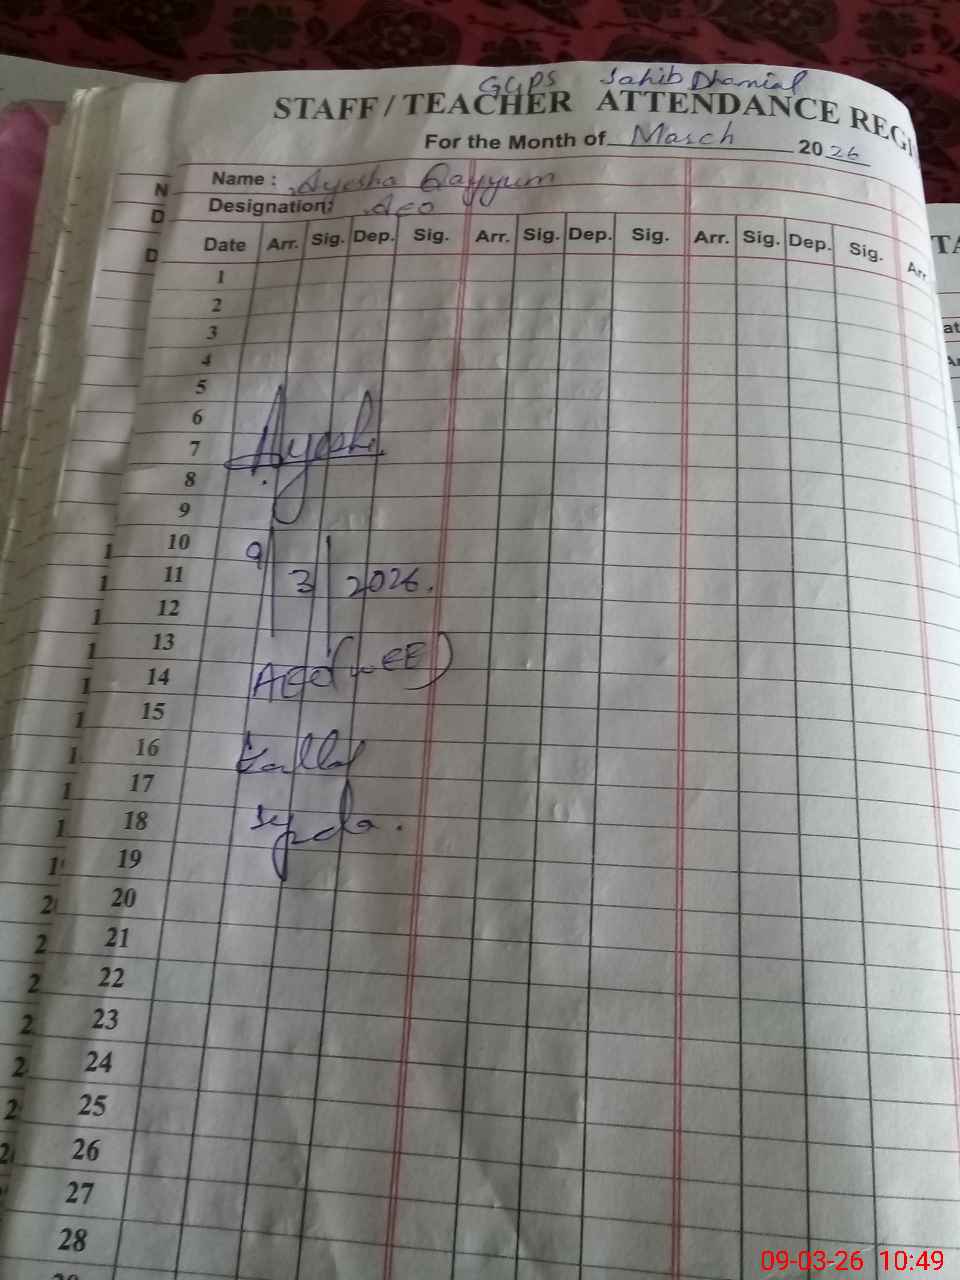 GGPS Sahib Dhamial
STAFF / TEACHER ATTENDANCE REGI
For the Month of March 2026
Name : Ayesha Qayyum
Designation: AEO
Date Arr. Sig. Dep. Sig. Arr. Sig. Dep. Sig. Arr. Sig. Dep. Sig. Arr
1
2
3
4
5
6
7
8
9
10
11
12
13
14
15
16
17
18
19
20
21
22
23
24
25
26
27
28
Ayesha
9/3/2026.
AEO (WEE)
Kallar
Syeda.
09-03-26 10:49